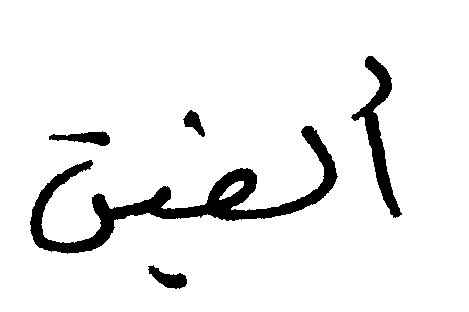 الضيق